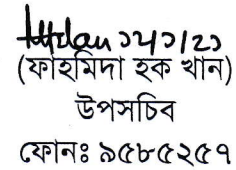 ১৫/১/২১
(ফাহমিদা হক খান)
উপসচিব
ফোনঃ ৯৫৮৫২৫৭